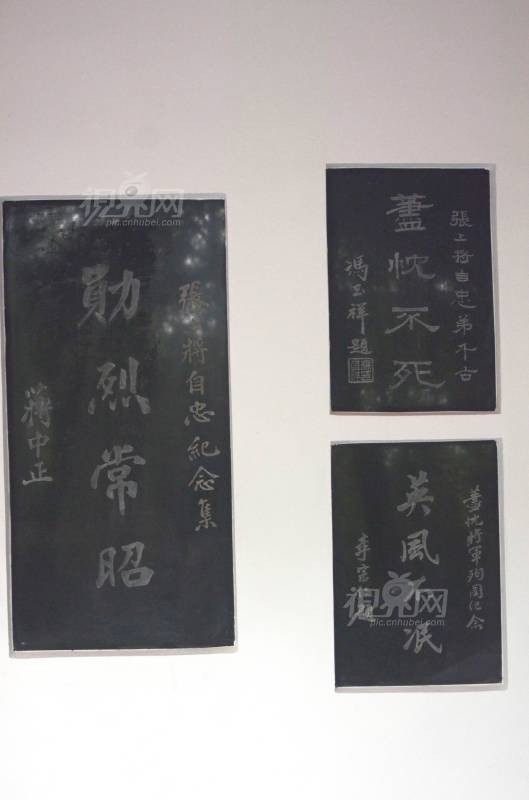 張上將自忠紀念集
勛烈常昭
蔣中正
張上將自忠弟千古
藎忱不死
馮玉祥題
藎忱將軍殉國紀念
英風不泯
李宗仁題
視界网
pic.cnhubei.com
視界网
pic.cnhubei.com